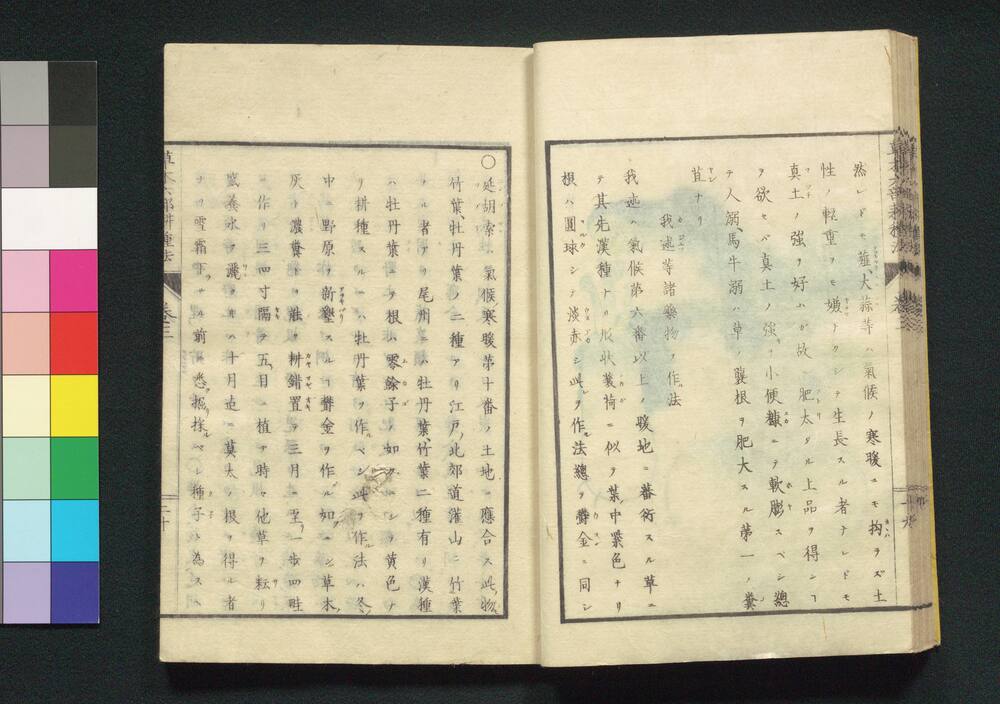 然レドモ薤、大蒜等ハ氣候ノ寒暖ニモ拘ラズ土
性ノ輕重ヲモ嫌ナクシテ生長スル者ナレドモ
真土ノ強ヲ好ムガ故ニ肥太タル上品ヲ得ンヿ
ヲ欲セバ真土ノ強キヲ小便糠ニテ軟膨スベシ總
テ人溺、馬牛溺ハ草ノ襲根ヲ肥大スル第一ノ糞
苴ナリ
我述等諸藥物ノ作法
我述ハ氣候第六番以上ノ暖地ニ蕃衍スル草ニ
テ其先漢種ナリ形狀蘘荷ニ似ヲ葉中紫色ナリ
根ハ圓球シテ淡赤シ此ヲ作ル法總ヲ欝金ニ同シ
○延胡索ハ氣候寒暖第十番ノ土地ニ應合ス此物
竹葉、牡丹葉ノ二種アリ江戸ノ北郊道灌山ニ竹葉
ノル者アリ尾州ニハ牡丹葉、竹葉二種有リ漢種
ハ牡丹葉ニヲ根ハ零餘子ノ如クニシヲ黄色ナ
リ耕種スルニハ牡丹葉ヲ作ルベシ此ヲ作ル法ハ冬
中ニ野原ヲ新墾スルヿ欝金ヲ作ルガ如クニシ草木
灰ト濃糞トヲ壯ヲ耕錯置ヲ三月ニ至リ一歩四畦
ニ作リ三四寸隔ヲ五目ニ植ア時々他草ヲ耘リ
養水ヲ澆クキハ十月迠ニ莫太ノ根ヲ得ル者
ヲリ雪霜下ノ前ニ悉掘採ルベシ種子ト為スハ
草木六部耕種法
卷三
二十